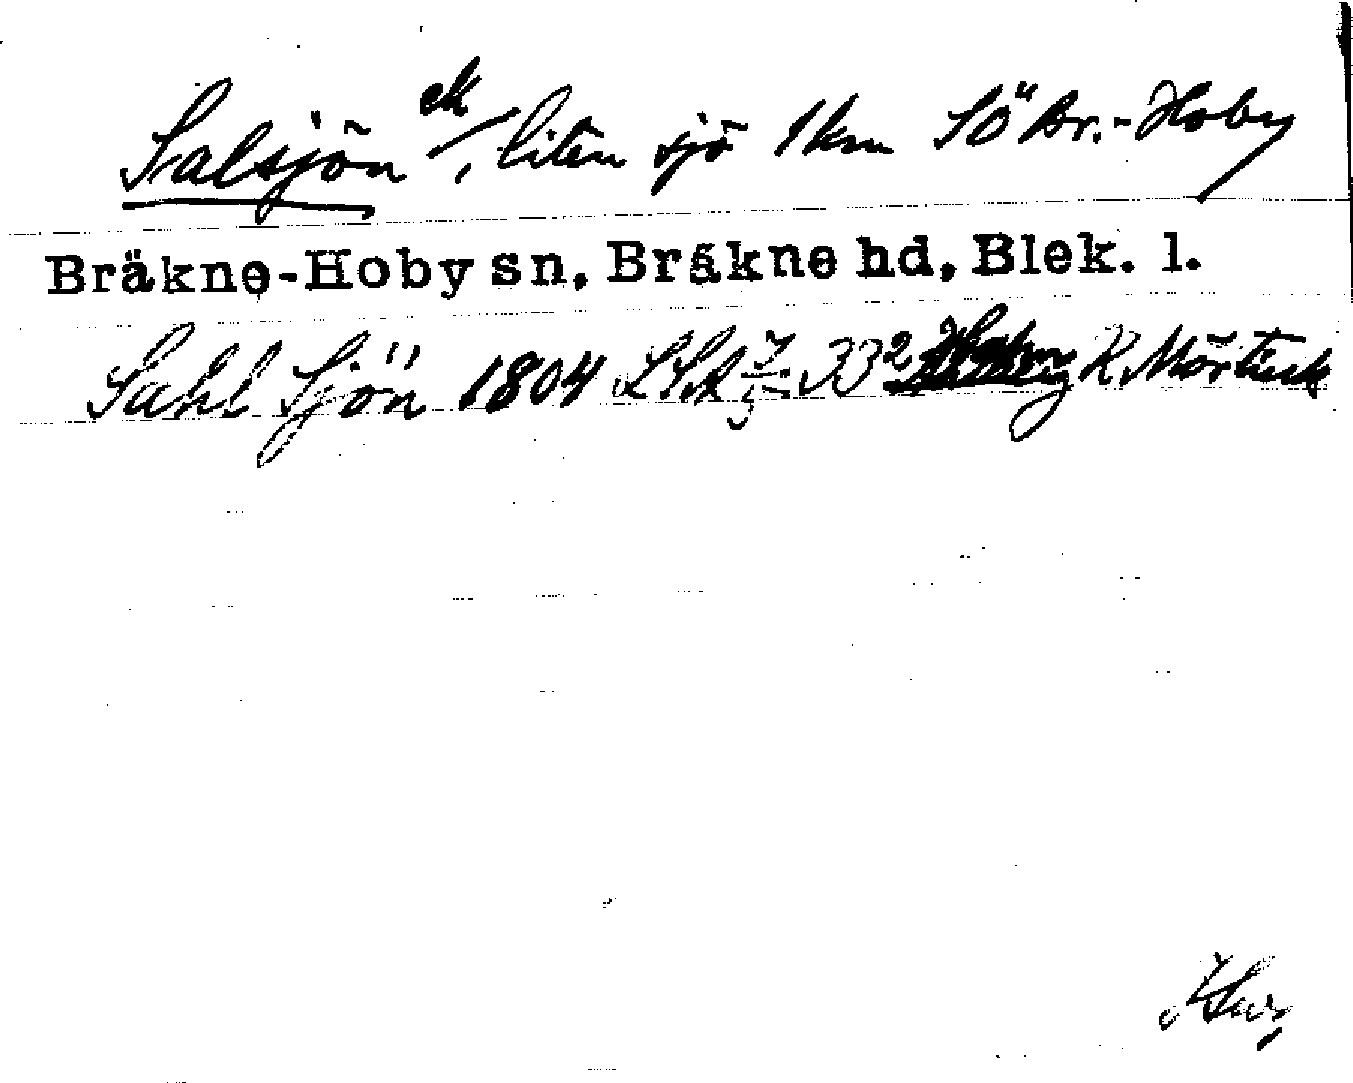 Salsjön ek/, liten sjö 1 km SÖ Br.-Hoby
Bräkne-Hoby sn, Bräkne hd, Blek. l.
Sahl Sjön 1804 LSA 33² K Mörtjuk